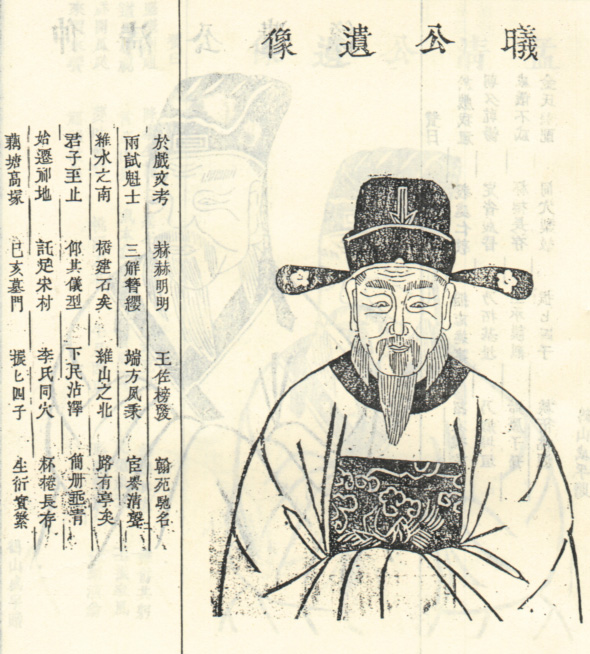 曦公遺像
於戲文考 赫赫明明 王佐榜發 翰苑馳名
兩試魁士 三解簪纓 端方夙秉 宦清聲
維水之南 橋建石矣 維山之北 路有亭矣
君子至止 仰其儀型 下民沾澤 簡册垂青
始遷祁地 託足宋村 李氏同穴 杯棬長存
藕塘高塚 巳亥墓門 張七四子 生衍實繁